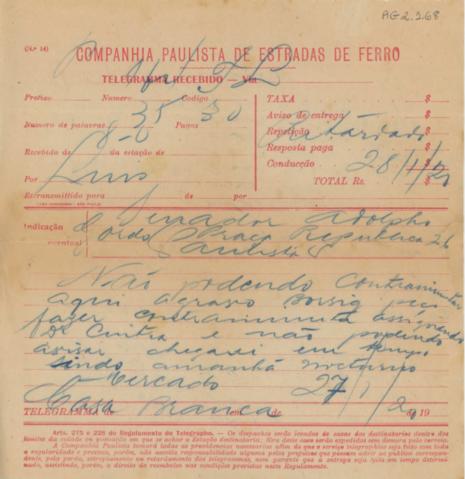 AG2.1.68
(N.º 14)
COMPANHIA PAULISTA DE ESTRADAS DE FERRO
TELEGRAMMA RECEBIDO — VIA
Prefixo Numero Codigo
35 50
Numero de palavras Pagas
Recebido de da estação de
Por Luis
Retransmittido para de por
TAXA $
Aviso de entrega $
Repetição $
Retardado
Resposta paga $
Conducção $
28/1/20
TOTAL Rs. $
Indicação eventual
Senador Adolpho
Gordo Praça Republica 26
Paulista
Não podendo contraminutar
aqui aggravo peço
fazer contraminuta assignando
Dr Cintra e não podendo
avisar chegarei em tempo
indo amanhã nocturno
Mercado 27/1/20
TELEGRAMMA de Casa Branca 19
Arts. 275 e 226 do Regulamento do Telegrapho. — Os despachos serão levados ás casas dos destinatarios dentro dos
limites da cidade ou povoação em que se achar a Estação destinataria; fóra deste caso serão expedidos sem demora pelo correio.
A Companhia Paulista tomará todas as providencias necessarias afim de que o serviço telegraphico seja feito com toda
a regularidade e presteza, porém, não assume responsabilidade alguma pelos prejuizos que possam advir ao publico corresponden-
te, pela perda, estropiamento ou retardamento dos telegrammas, nem garante que a entrega seja feita em tempo determi-
nado, assistindo, porém, o direito de reembolso nas condições previstas neste Regulamento.